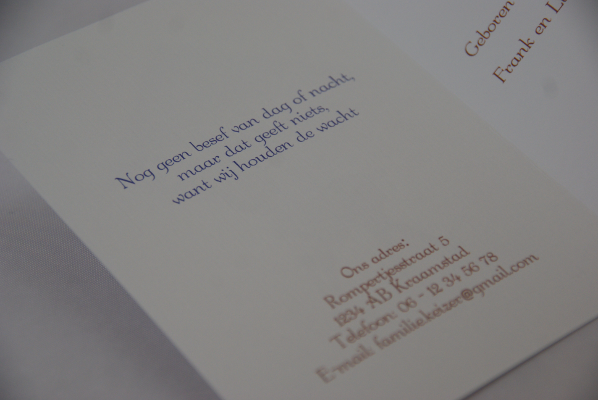 Nog geen besef van dag of nacht,
maar dat geeft niets,
want wij houden de wacht
Ons adres:
Rompertjesstraat 5
1234 AB Kraamstad
Telefoon: 06 - 12 34 56 78
E-mail: familie.keizer@gmail.com
Geboren
Frank en